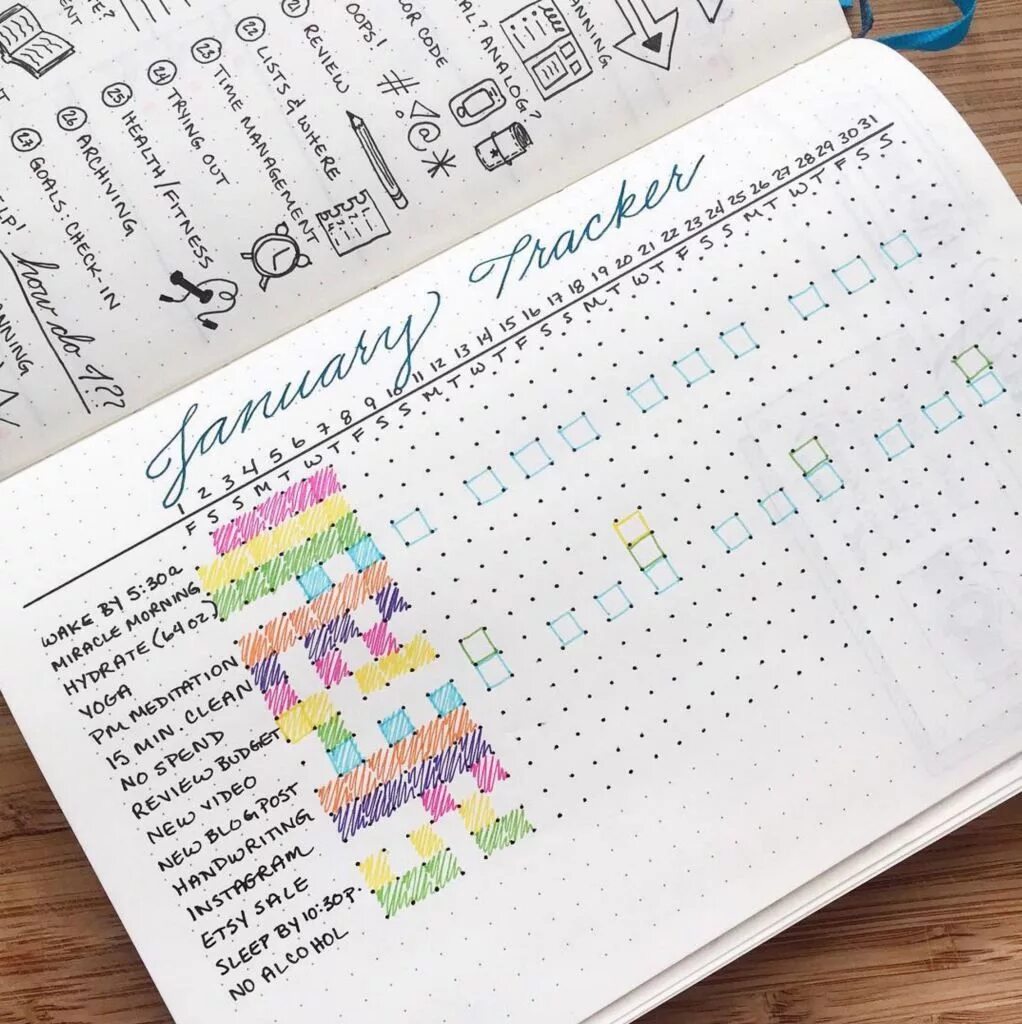 21 REVIEW
OOPS!
COLOR CODE
ANALOG?
22 LISTS & WHERE
23 TIME MANAGEMENT
24 TRYING OUT
25 HEALTH/FITNESS
26 ARCHIVING
27 GOALS: CHECK-IN
how do I??
#!
@
*
1.
2.
3.
January Tracker
1 2 3 4 5 6 7 8 9 10 11 12 13 14 15 16 17 18 19 20 21 22 23 24 25 26 27 28 29 30 31
F S S M T W T F S S M T W T F S S M T W T F S S M T W T F S S
WAKE BY 5:30a
MIRACLE MORNING
HYDRATE (64 oz)
YOGA
PM MEDITATION
15 MIN. CLEAN
NO SPEND
REVIEW BUDGET
NEW VIDEO
NEW BLOG POST
HANDWRITING
INSTAGRAM
ETSY SALE
SLEEP BY 10:30p.
NO ALCOHOL